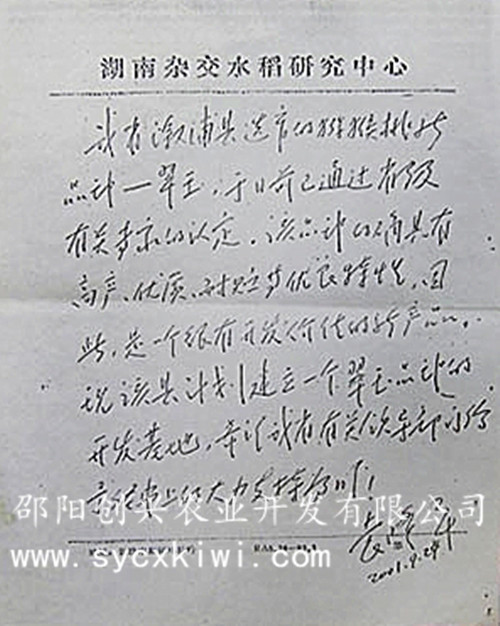 湖南杂交水稻研究中心
我省溆浦县选育的猕猴桃新
品种—翠玉，于日前已通过省级
有关专家的认定。该品种的确具有
高产、优质、耐贮等优良特性，因
此，是一个很有开发价值的新产品。
说该县计划建立一个翠玉品种的
开发基地，希望我省有关领导部门给
予经费上的大力支持为盼！
袁隆平
2001.9.24
邵阳创兴农业开发有限公司
www.sycxkiwi.com